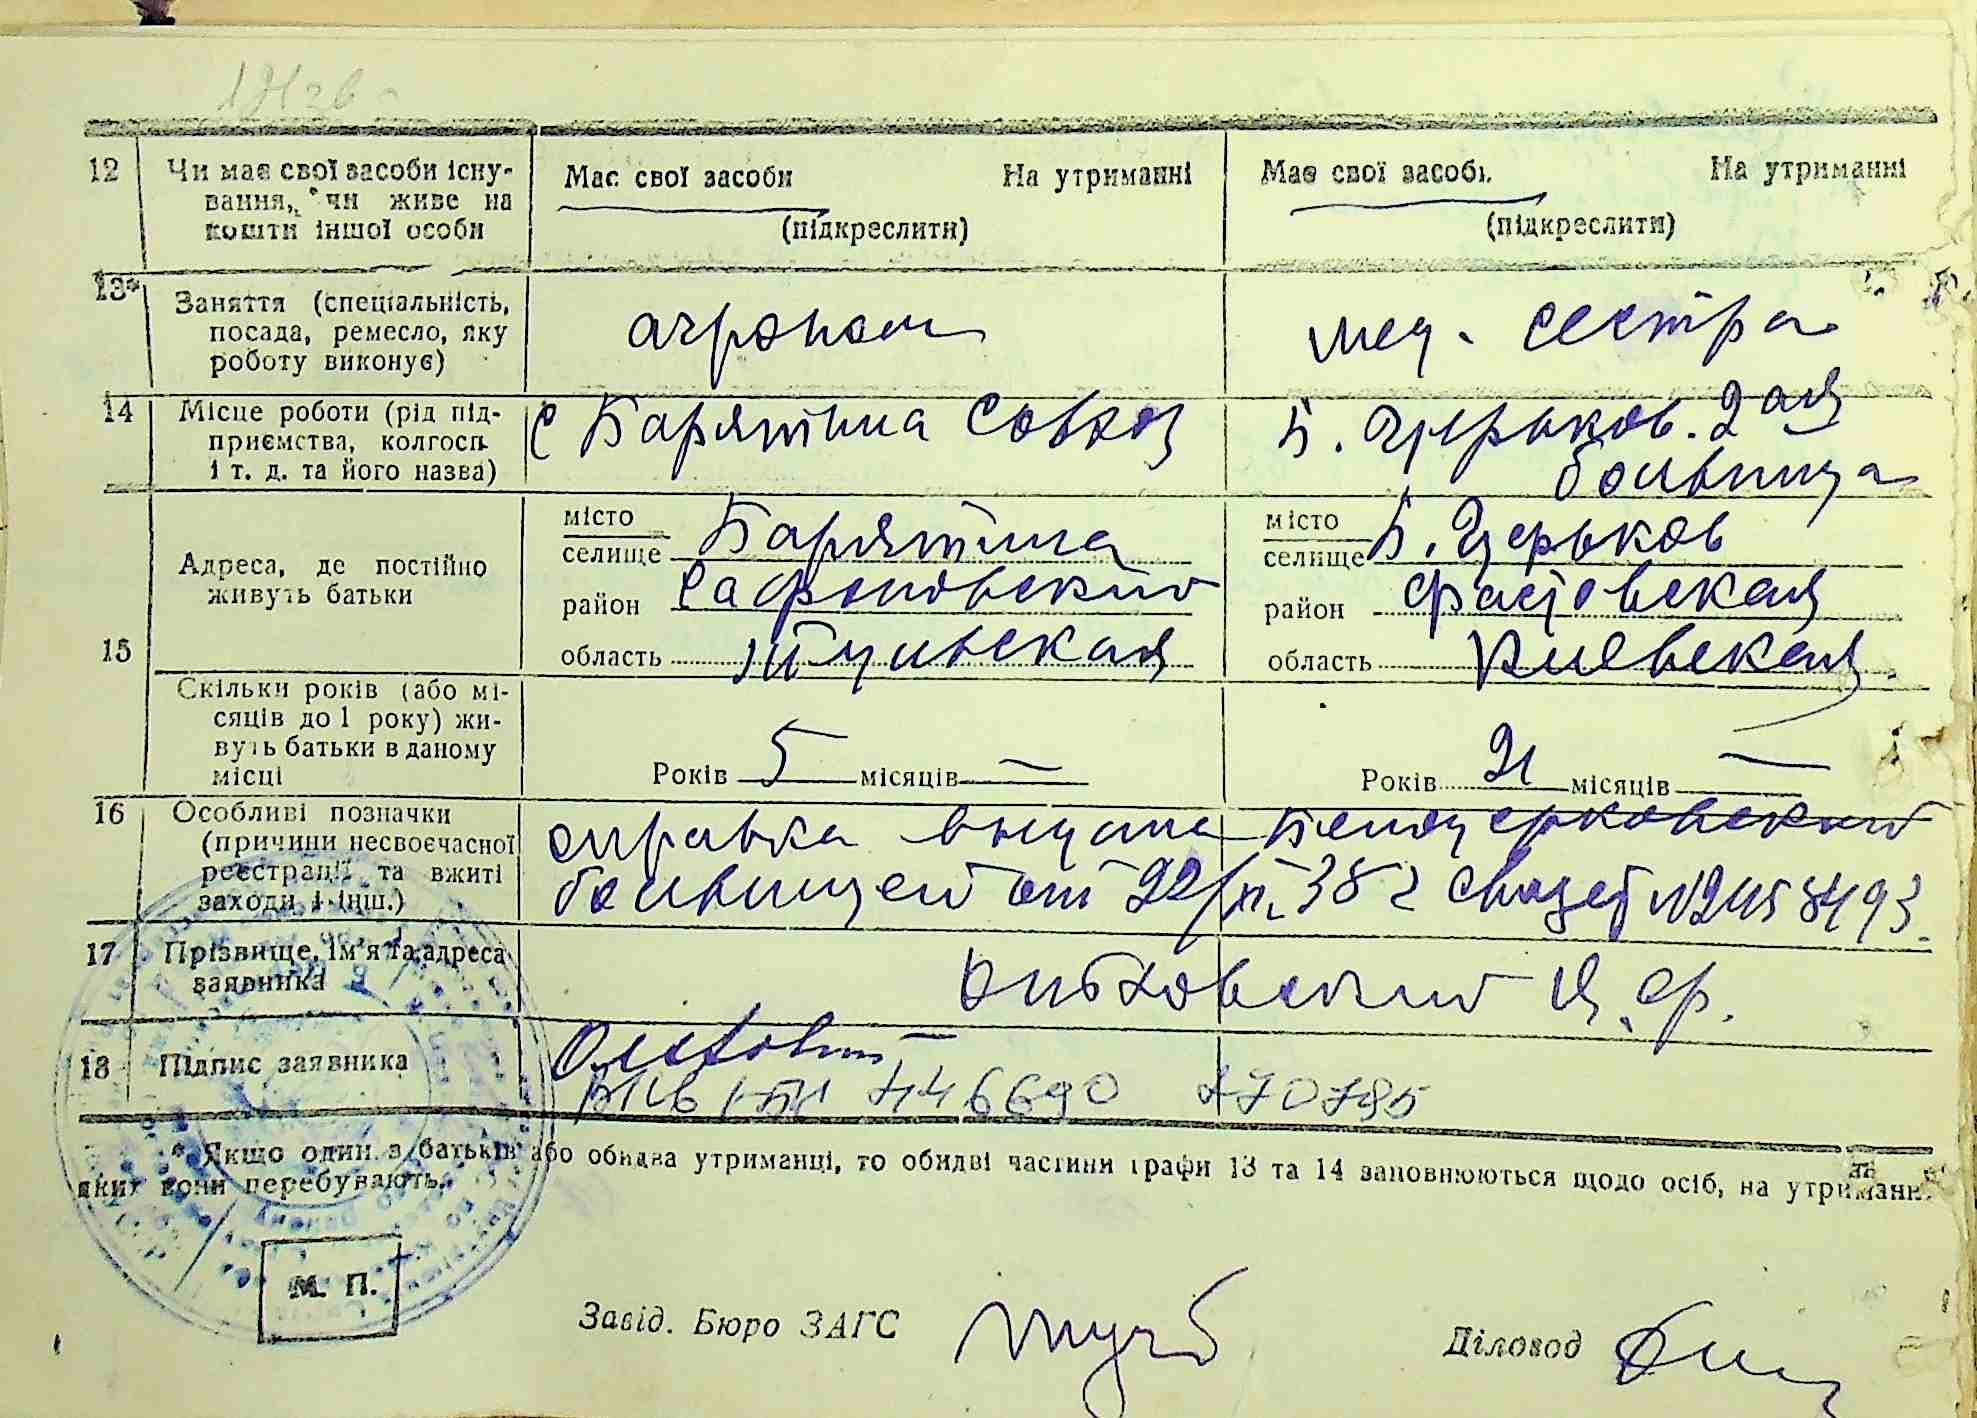 12 Чи має свої засоби існу-
вання, чи живе на
кошти іншої особи
Має свої засоби На утриманні
(підкреслити)
Має свої засоби На утриманні
(підкреслити)
13* Заняття (спеціальність,
посада, ремесло, яку
роботу виконує)
агроном
мед. сестра
14 Місце роботи (рід під-
приємства, колгосп
і т. д. та його назва)
с Барятина совхоз
Б. Церьков. 2ая
больница
15 Адреса, де постійно
живуть батьки
місто
селище Барятина
район Сафоновский
область Тульская
місто
селище Б. Церьков
район Фастовская
область Киевская
Скільки років (або мі-
сяців до 1 року) жи-
вуть батьки в даному
місці
Років 5 місяців —
Років 21 місяців —
16 Особливі позначки
(причини несвоєчасної
реєстрації та вжиті
заходи і інш.)
справка выдана Белоцерковской
больницей от 22/ 38 г
17 Прізвище, ім'я та адреса
заявника
18 Підпис заявника
446690 170785
* Якщо один з батьків або обидва утриманці, то обидві частини графи 13 та 14 заповнюються щодо осіб, на утриманні
яких вони перебувають.
М. П.
Завід. Бюро ЗАГС
Діловод